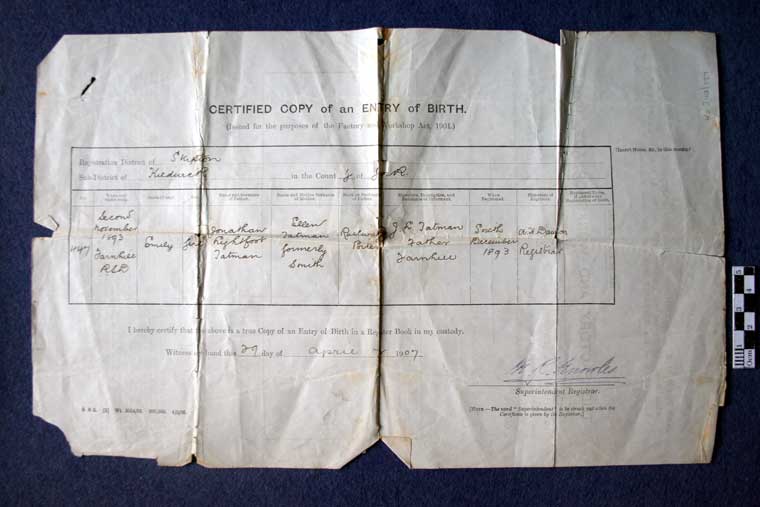 CERTIFIED COPY of an ENTRY of BIRTH.
(Issued for the purposes of the Factory and Workshop Act, 1901.)
Registration District of Skipton
Sub-District of Kildwick in the County of York
When and where born. Name, if any. Sex. Name and Surname of Father. Name and Maiden Surname of Mother. Rank or Profession of Father. Signature, Description, and Residence of Informant. When Registered. Signature of Registrar.
447
Second
November
1893
Farnhill
RSD
Emily
Girl
Jonathan
Rightfoot
Tatman
Ellen
Tatman
formerly
Smith
Railway
Porter
J. R Tatman
Father
Farnhill
December
1893
Registrar
I hereby certify that the above is a true Copy of an Entry of Birth in a Register Book in my custody.
Witness my hand this 29 day of April 1907
Knowles
Superintendent Registrar.
[NOTE.—The word "Superintendent" to be struck out when the
Certificate is given by the Registrar.]
0cm 1 2 3 4 5